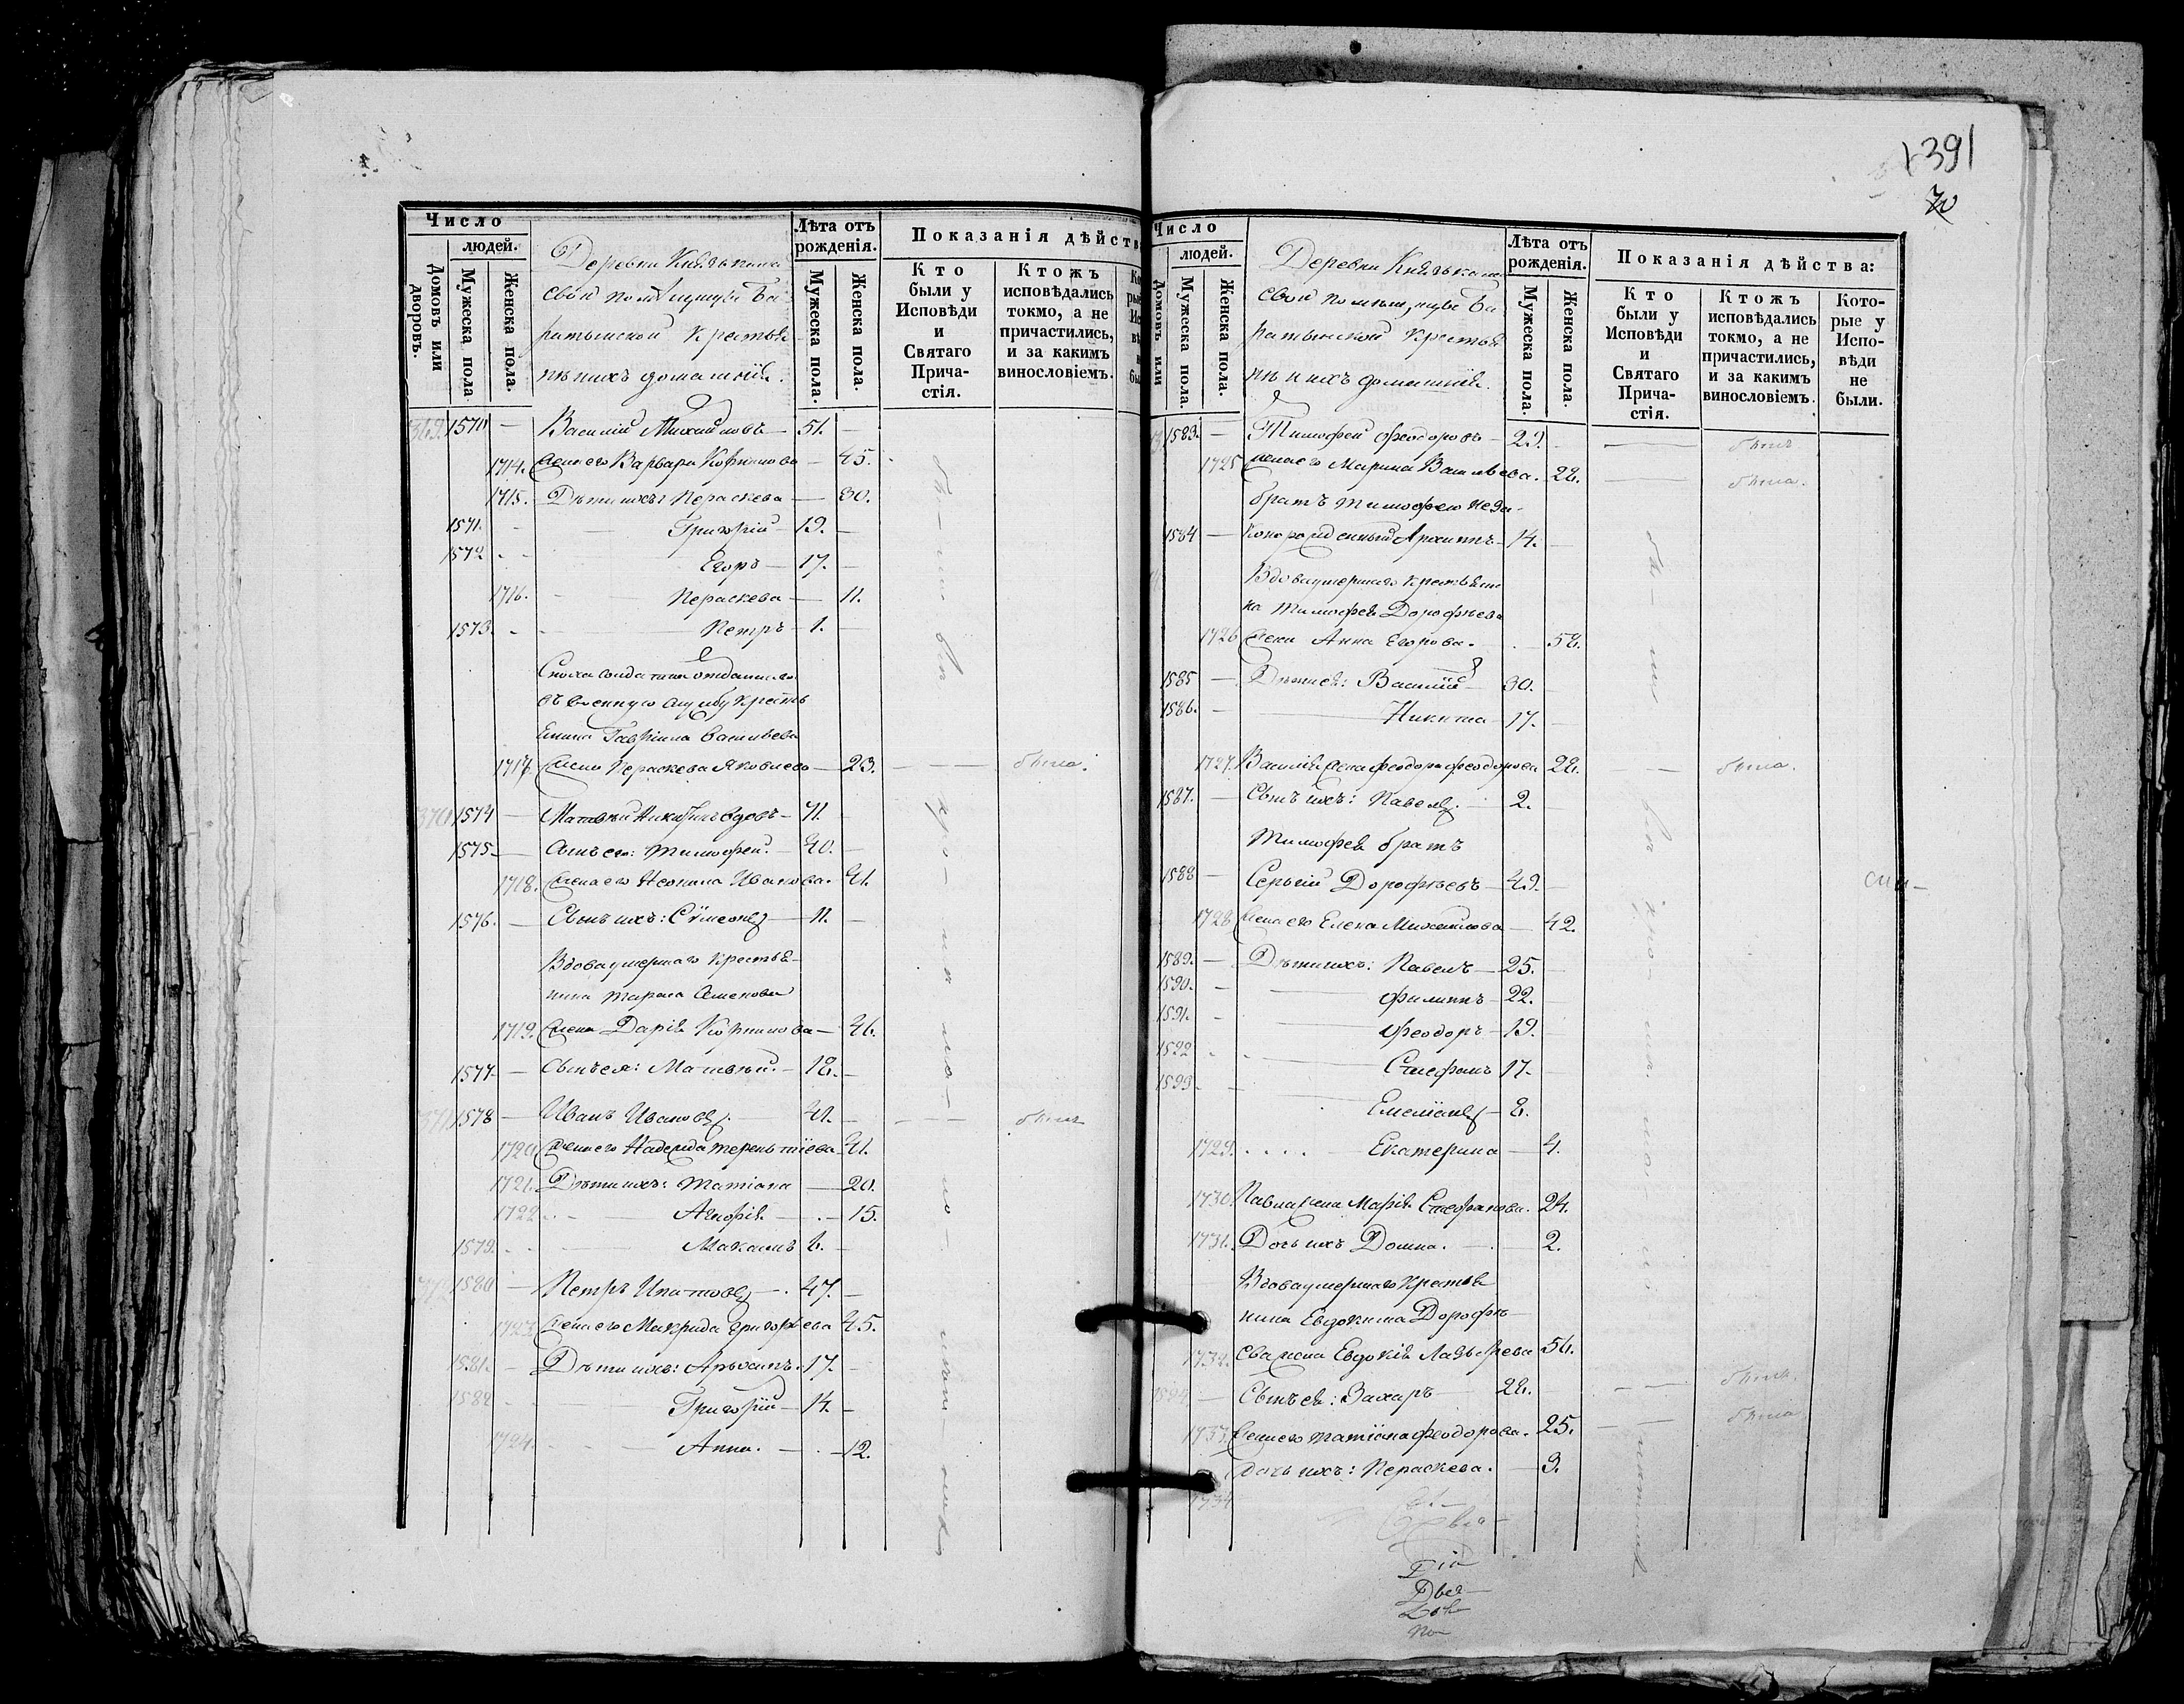 Число
людей.
Домовъ или дворовъ.
Мужеска пола.
Женска пола.
Деревни Князькина
свой помѣщицы Ба-
ратынской крестья
не и ихъ домашнія.
Лѣта отъ рожденія.
Мужеска пола.
Женска пола.
Показанія дѣйств
Кто были у Исповѣди и Святаго Причастія.
Ктожъ исповѣдались токмо, а не причастились, и за какимъ винословіемъ.
369. 1570 — Василій Михайловъ — 51. —
1714. Жена его Варвара Корнилова — 45.
1715. Дѣти ихъ: Пераскева — 30.
1571. — Григорій — 19. —
1572 — Егоръ — 17. —
1716. — Пераскева — 11.
1573. — Петръ — 1. —
Сноха солдатка отданнаго
въ военную службу крестья
нина Гавріила Васильева
1717. Жена Пераскева Яковлева — 23. — была.
370 1574 — Матвѣй Никифоръ вдовъ — 71.
1575 — Сынъ его: Тимофей. — 40. —
1718. Жена его Неонила Иванова. 41.
1576. — Сынъ ихъ: Сѵмеонъ — 11. —
Вдова умершаго крестья-
нина Тараса Семенова
1719. Жена Дарія Корнилова — 46.
1577 — Сынъ ея: Матвѣй. — 18. —
371 1578 — Иванъ Ивановъ. 41. — былъ
1720 Жена его Надежда Терентіева 41.
1721. Дѣти ихъ: Татіана — 20.
1722 — Агафія — 15.
1579. — Максимъ 6. —
1580 — Петръ Ипатовъ — 47. —
1723. Жена его Макрида Григорьева 45.
1581. — Дѣти ихъ: Архипъ. 17. —
1582 — Григорій — 14. —
1724. — Анна. — 12.
1391
Число
людей.
Домовъ или
Мужеска пола.
Женска пола.
Деревни Князькина
свой помѣщицы Ба-
ратынской крестья
не и ихъ домашнія.
Лѣта отъ рожденія.
Мужеска пола.
Женска пола.
Показанія дѣйства:
Кто были у Исповѣди и Святаго Причастія.
Ктожъ исповѣдались токмо, а не причастились, и за какимъ винословіемъ.
Которые у Исповѣди не были.
1583. — Тимофей Феодоровъ — 29. — былъ
1725 Жена его Марина Васильева. 28. — была.
братъ Тимофею неза-
1584 — коннорожденный Архипъ — 14. —
Вдова умершаго крестьяни
на Тимофея Дорофѣева
1726 Жена Анна Егорова. — 58.
1585 — Дѣти ея: Василій — 30. —
1586. — Никита — 17. —
1727. Василія жена Феодора Феодорова 28. — была.
1587. — Сынъ ихъ: Павелъ. — 2. —
Тимофея братъ
1588 — Сергій Дорофѣевъ — 49. —
1728 Жена его Елена Михайлова — 42.
1589. — Дѣти ихъ: Павелъ — 25. —
1590. — Филиппъ — 22.
1591. — Феодоръ — 19.
1592 — Стефанъ 17.
1593 — Емеліанъ — 8.
1729. — Екатерина — 4.
1730. Павла жена Марія Стефанова. 24.
1731. Дочь ихъ Домна. — 2.
Вдова умершаго крестья
нина Евдокима Дорофѣ-
1732. ева жена Евдокія Лазарева 56.
1594 — Сынъ ея: Захаръ — 28. — былъ.
1733. Жена его Татіана Феодорова. 25. — была.
1734 Дочь ихъ: Пераскева. — 3.